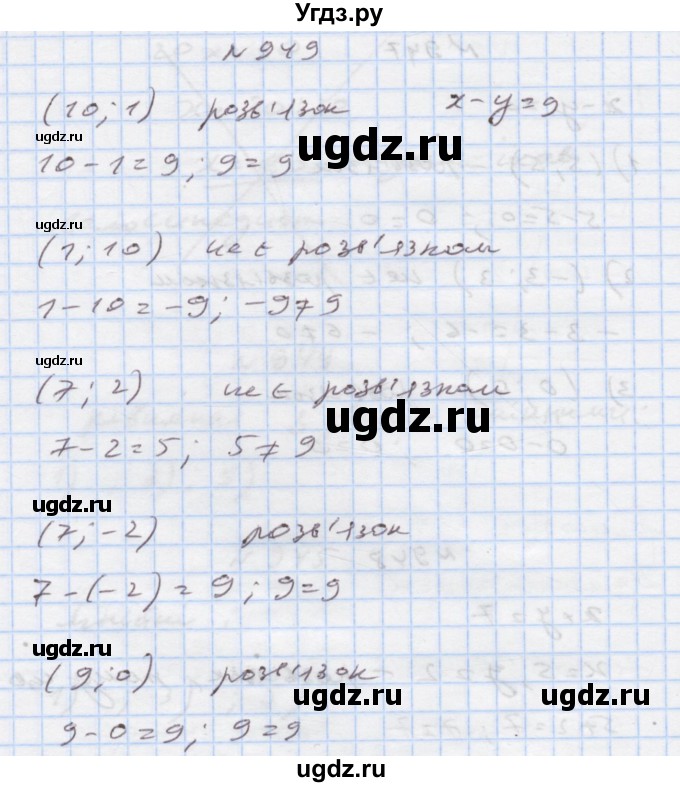 Угдз.ру
№949
(10; 1) розв'язок x-y=9
ugdz.ru
10-1=9; 9=9
ugdz.ru
ugdz.ru
(1; 10) не є розв'язком
1-10=-9; -9≠9
ugdz.ru
ugdz.ru
(7; 2) не є розв'язком
ugdz.ru
7-2=5; 5≠9
ugdz.ru
ugdz.ru
(7; -2) розв'язок
7-(-2)=9; 9=9
ugdz.ru
(9; 0) розв'язок
ugdz.ru
ugdz.ru
9-0=9; 9=9
ugdz.ru